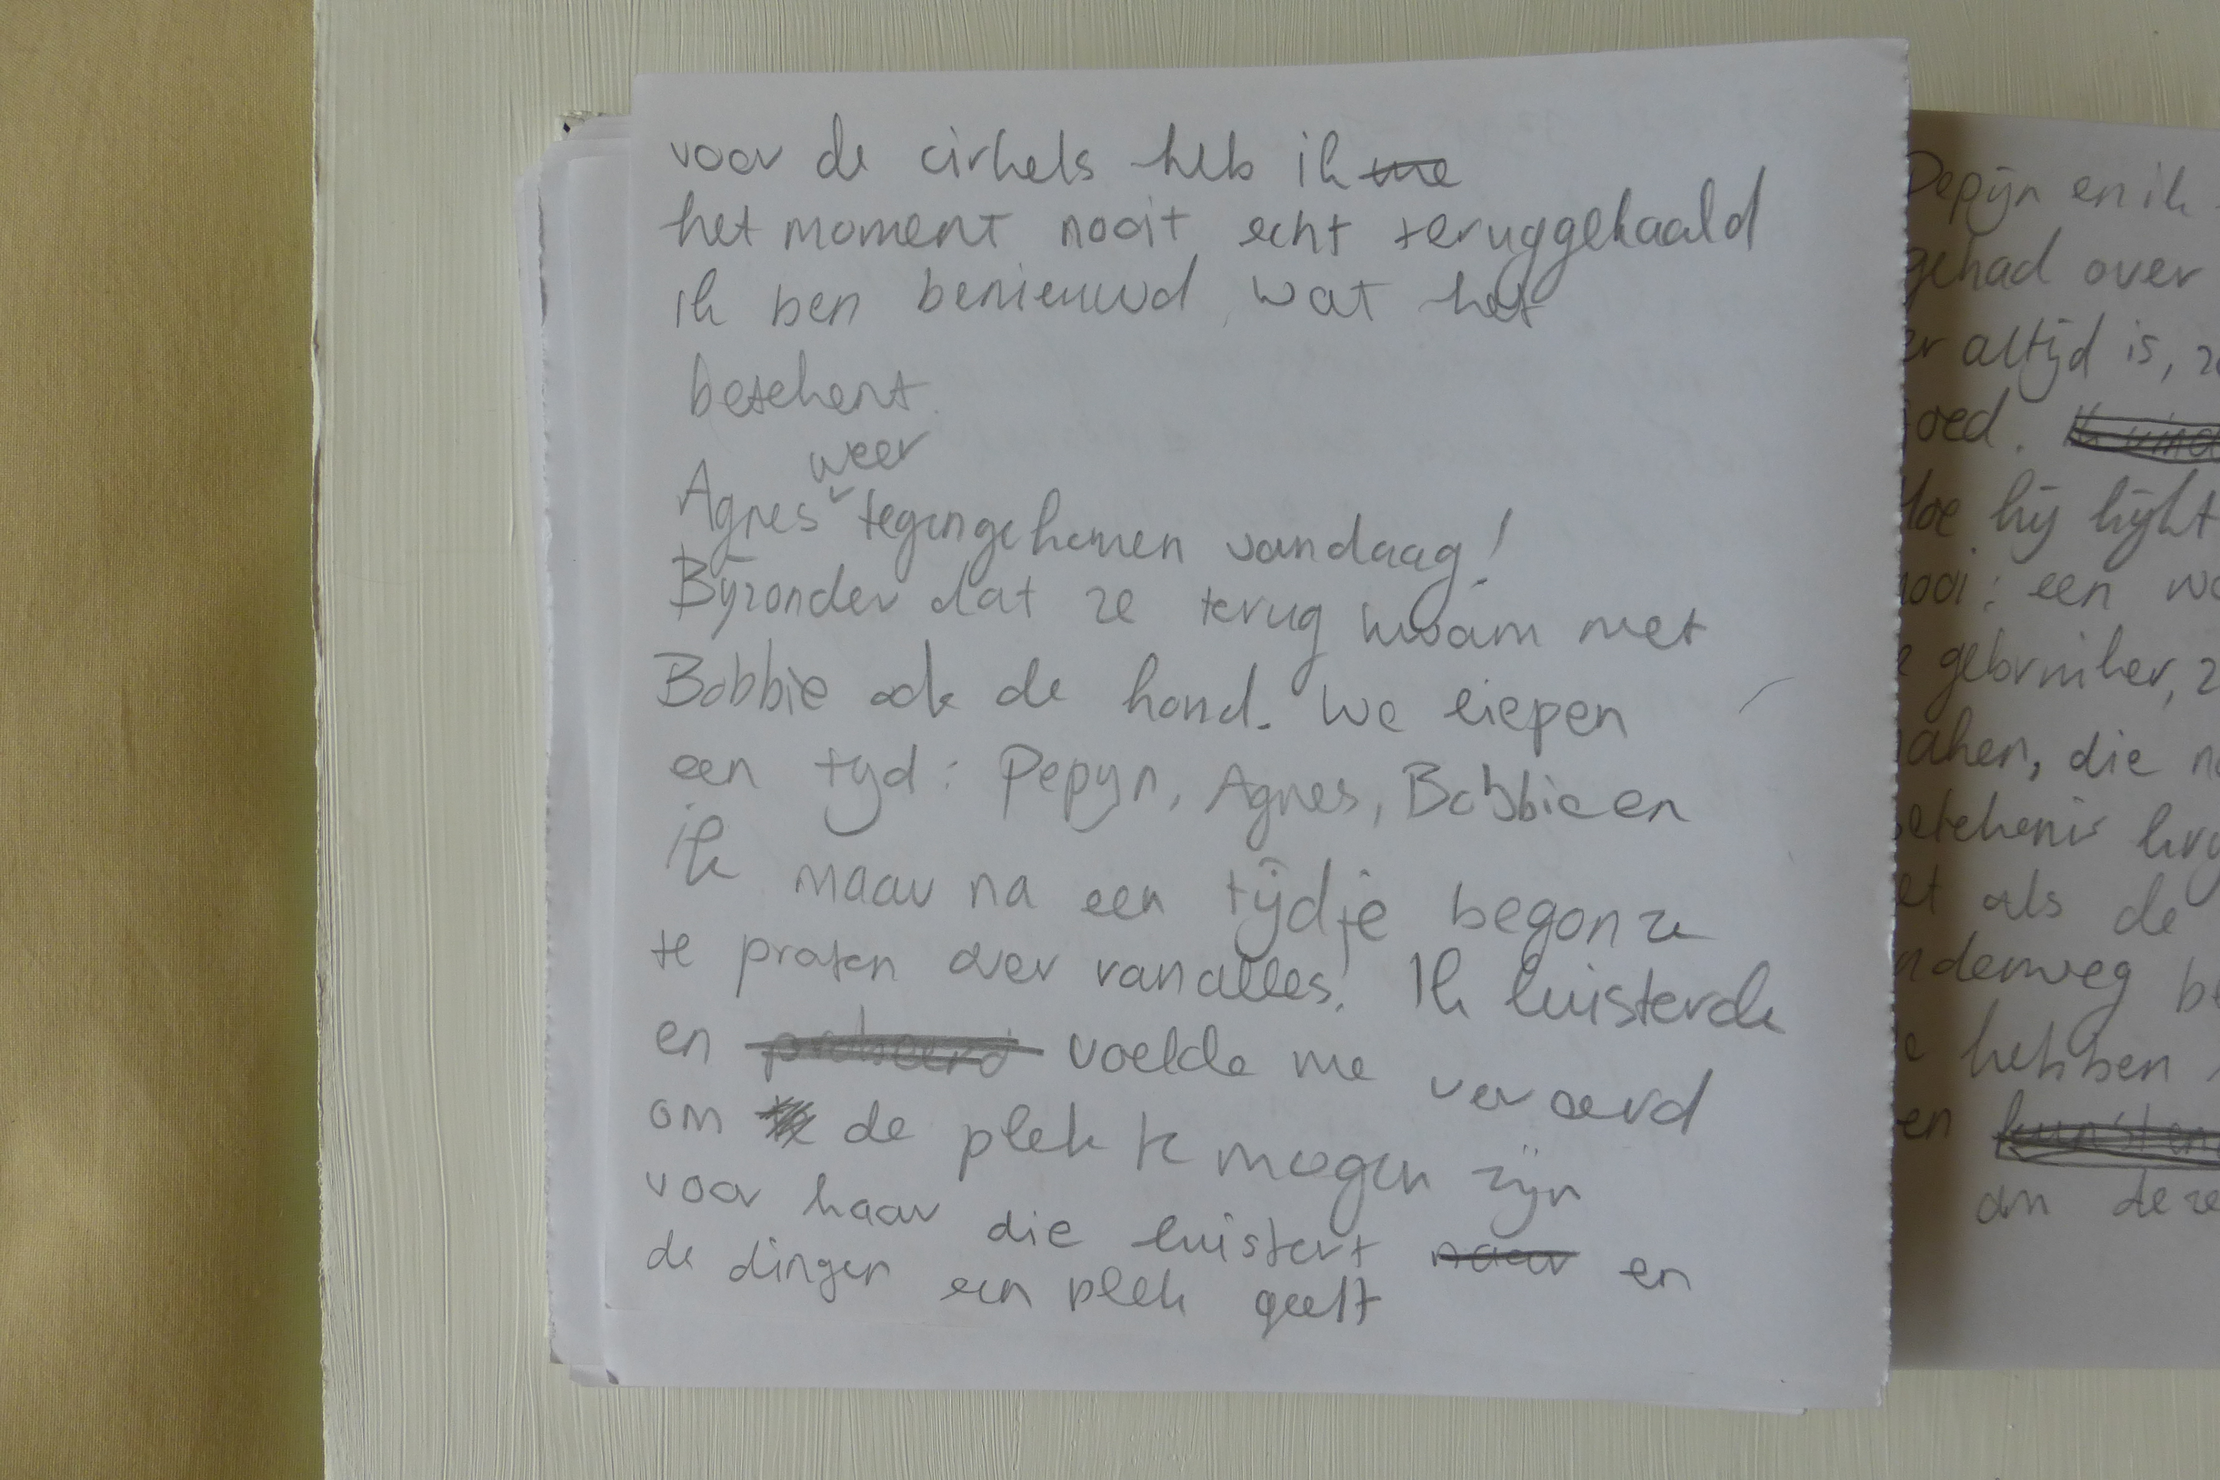 voor de cirkels heb ik me
het moment nooit echt teruggehaald
ik ben benieuwd wat het
betekent.
weer
Agnes tegengekomen vandaag!
Bijzonder dat ze terug kwam met
Bobbie ook de hond. We liepen
een tyd: Pepijn, Agnes, Bobbie en
ik maar na een tijdje begon ze
te praten over van alles. Ik luisterde
en probeerd voelde me vereerd
om de plek te mogen zijn
voor haar die luistert naar en
de dingen een plek geeft
Pepijn en ik
gehad over
er altijd is,
oed.
Hoe hij kijkt
ooi: een
gebruiker,
aken, die
etekenis
et als de
nderweg
hebben
en
om deze